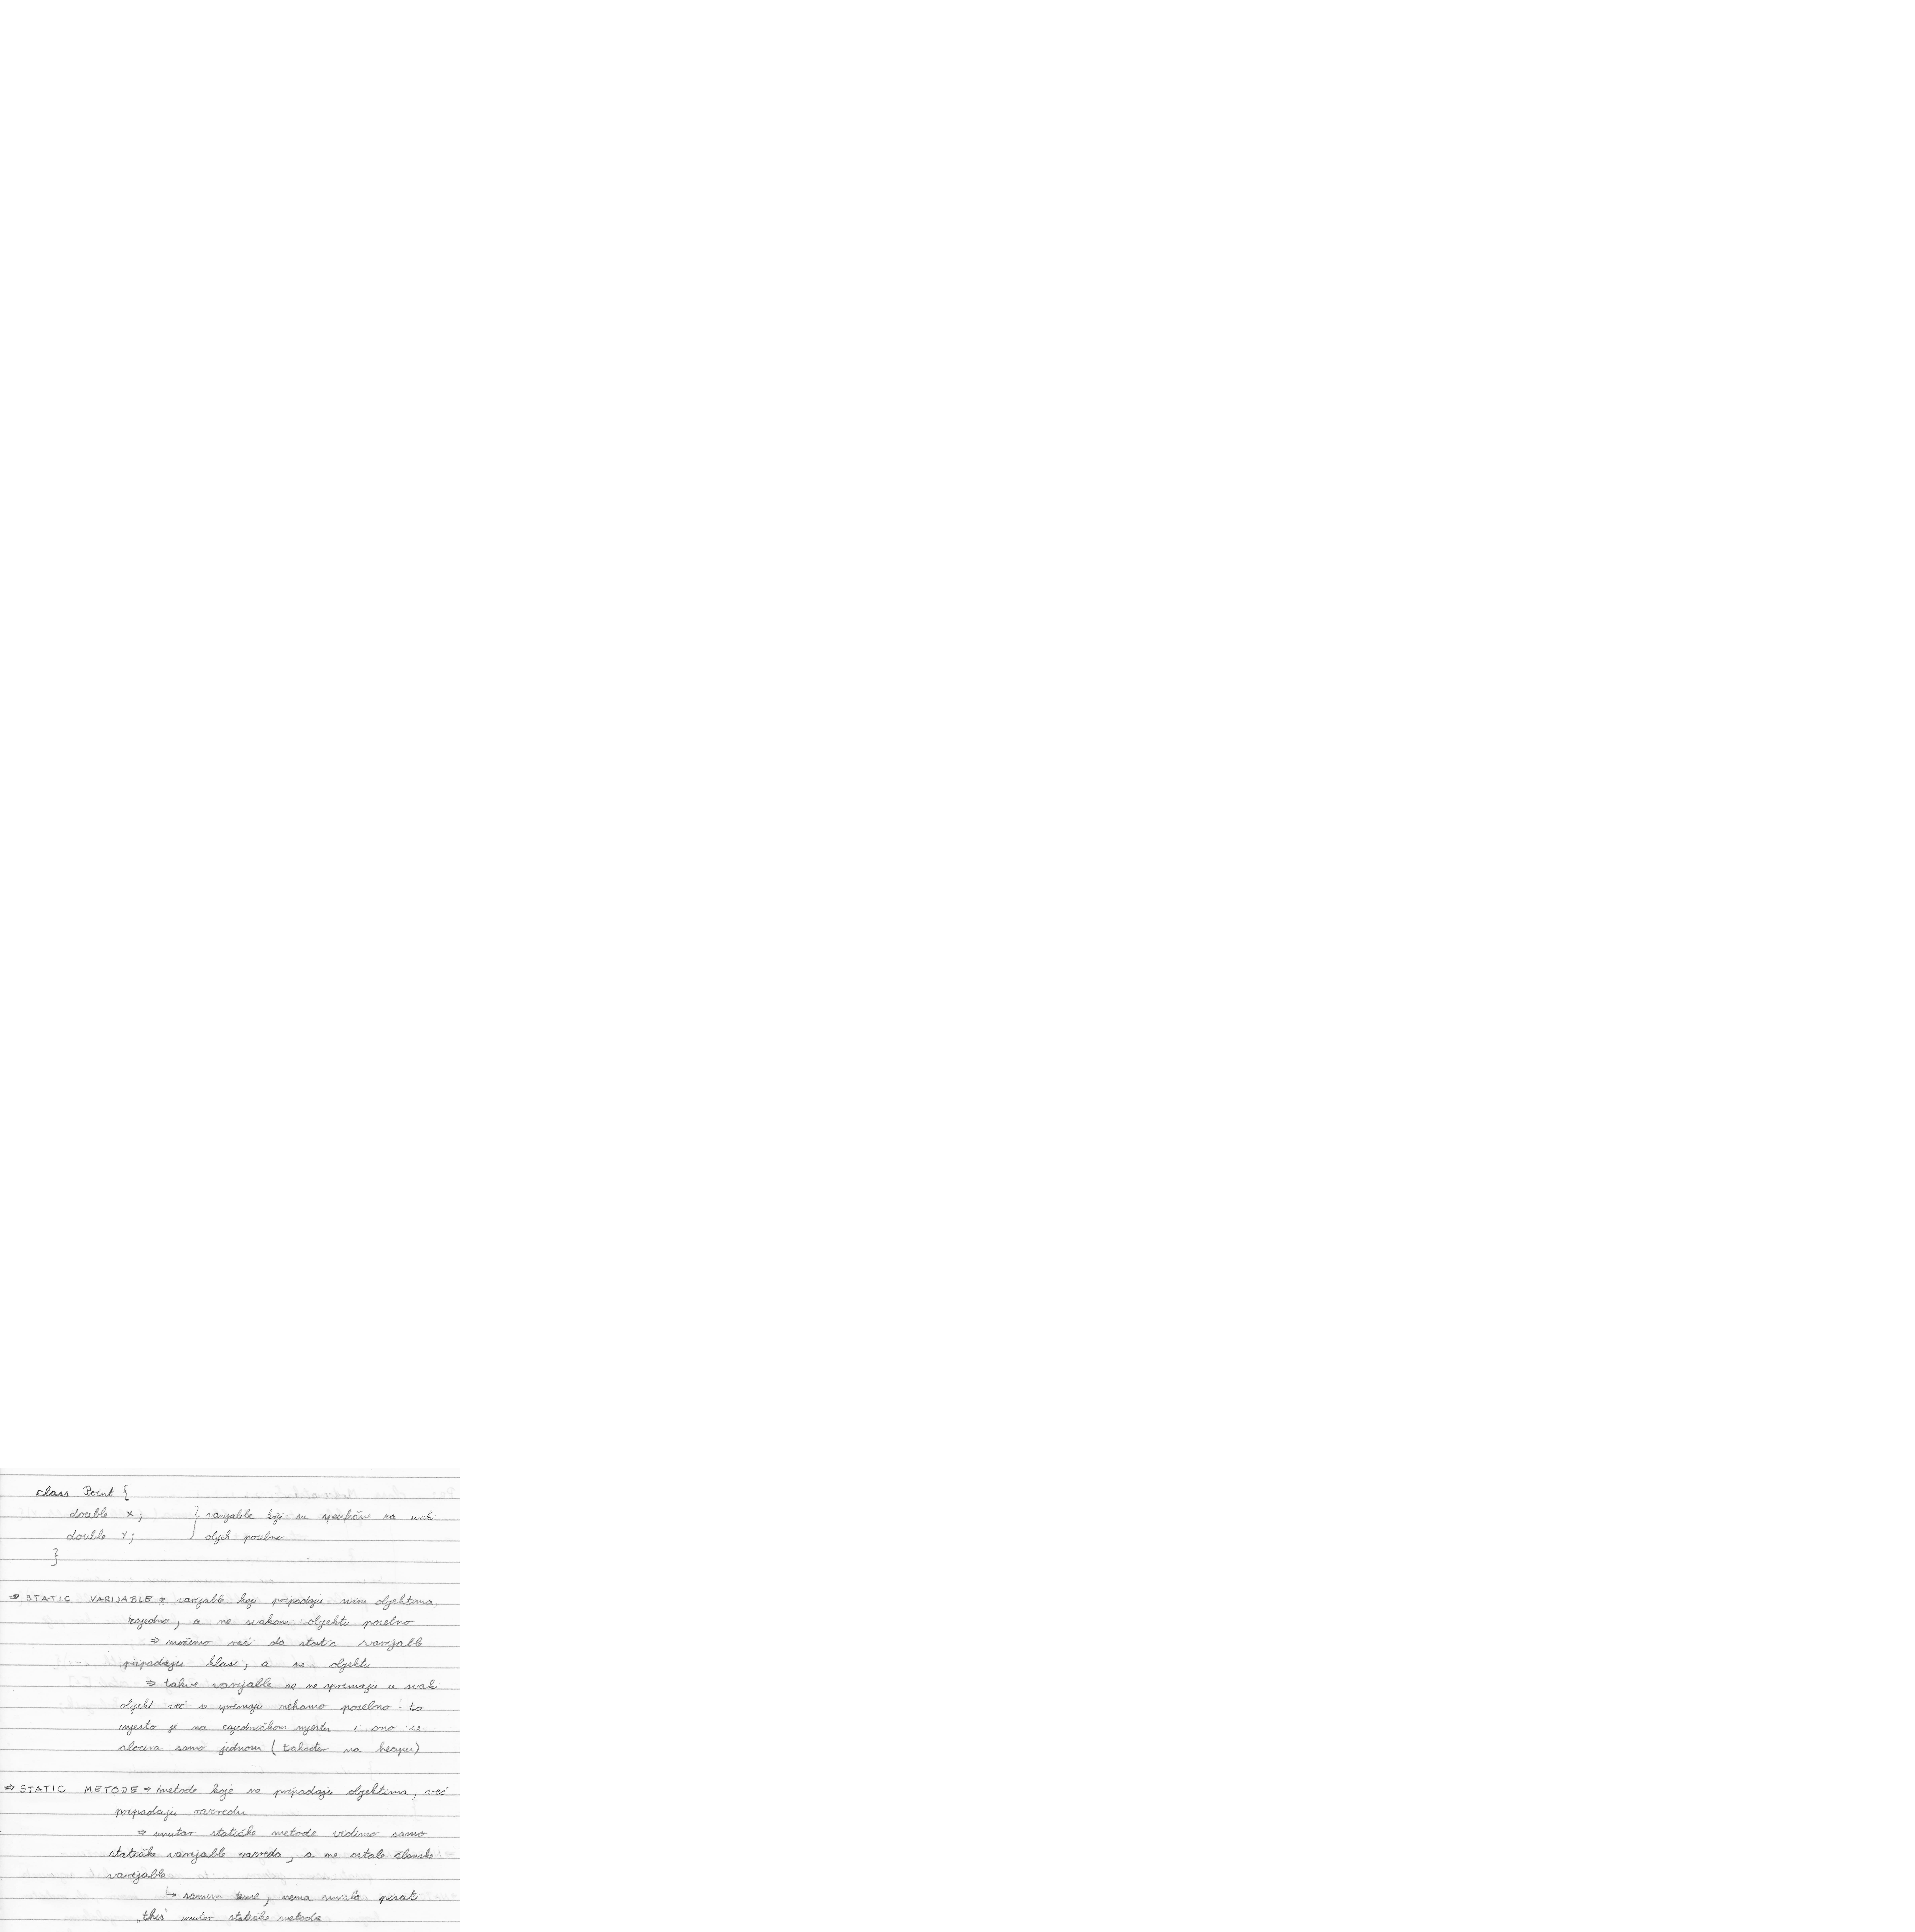 class Point {
double x; } varijable koje su specifične za svaki
double y; objekt posebno
}
⇒ STATIC VARIJABLE ⇒ varijable koje pripadaju svim objektima
zajedno, a ne svakom objektu posebno
⇒ možemo reći da static varijable
pripadaju klasi, a ne objektu
⇒ takve varijable se ne spremaju u svaki
objekt već se spremaju nekamo posebno - to
mjesto je na zajedničkom mjestu i ono se
alocira samo jednom (također na heapu)
⇒ STATIC METODE ⇒ metode koje ne pripadaju objektima, već
pripadaju razredu
⇒ unutar statičke metode vidimo samo
statičke varijable razreda, a ne ostale članske
varijable
↳ samim time, nema smisla pisati
„this" unutar statičke metode